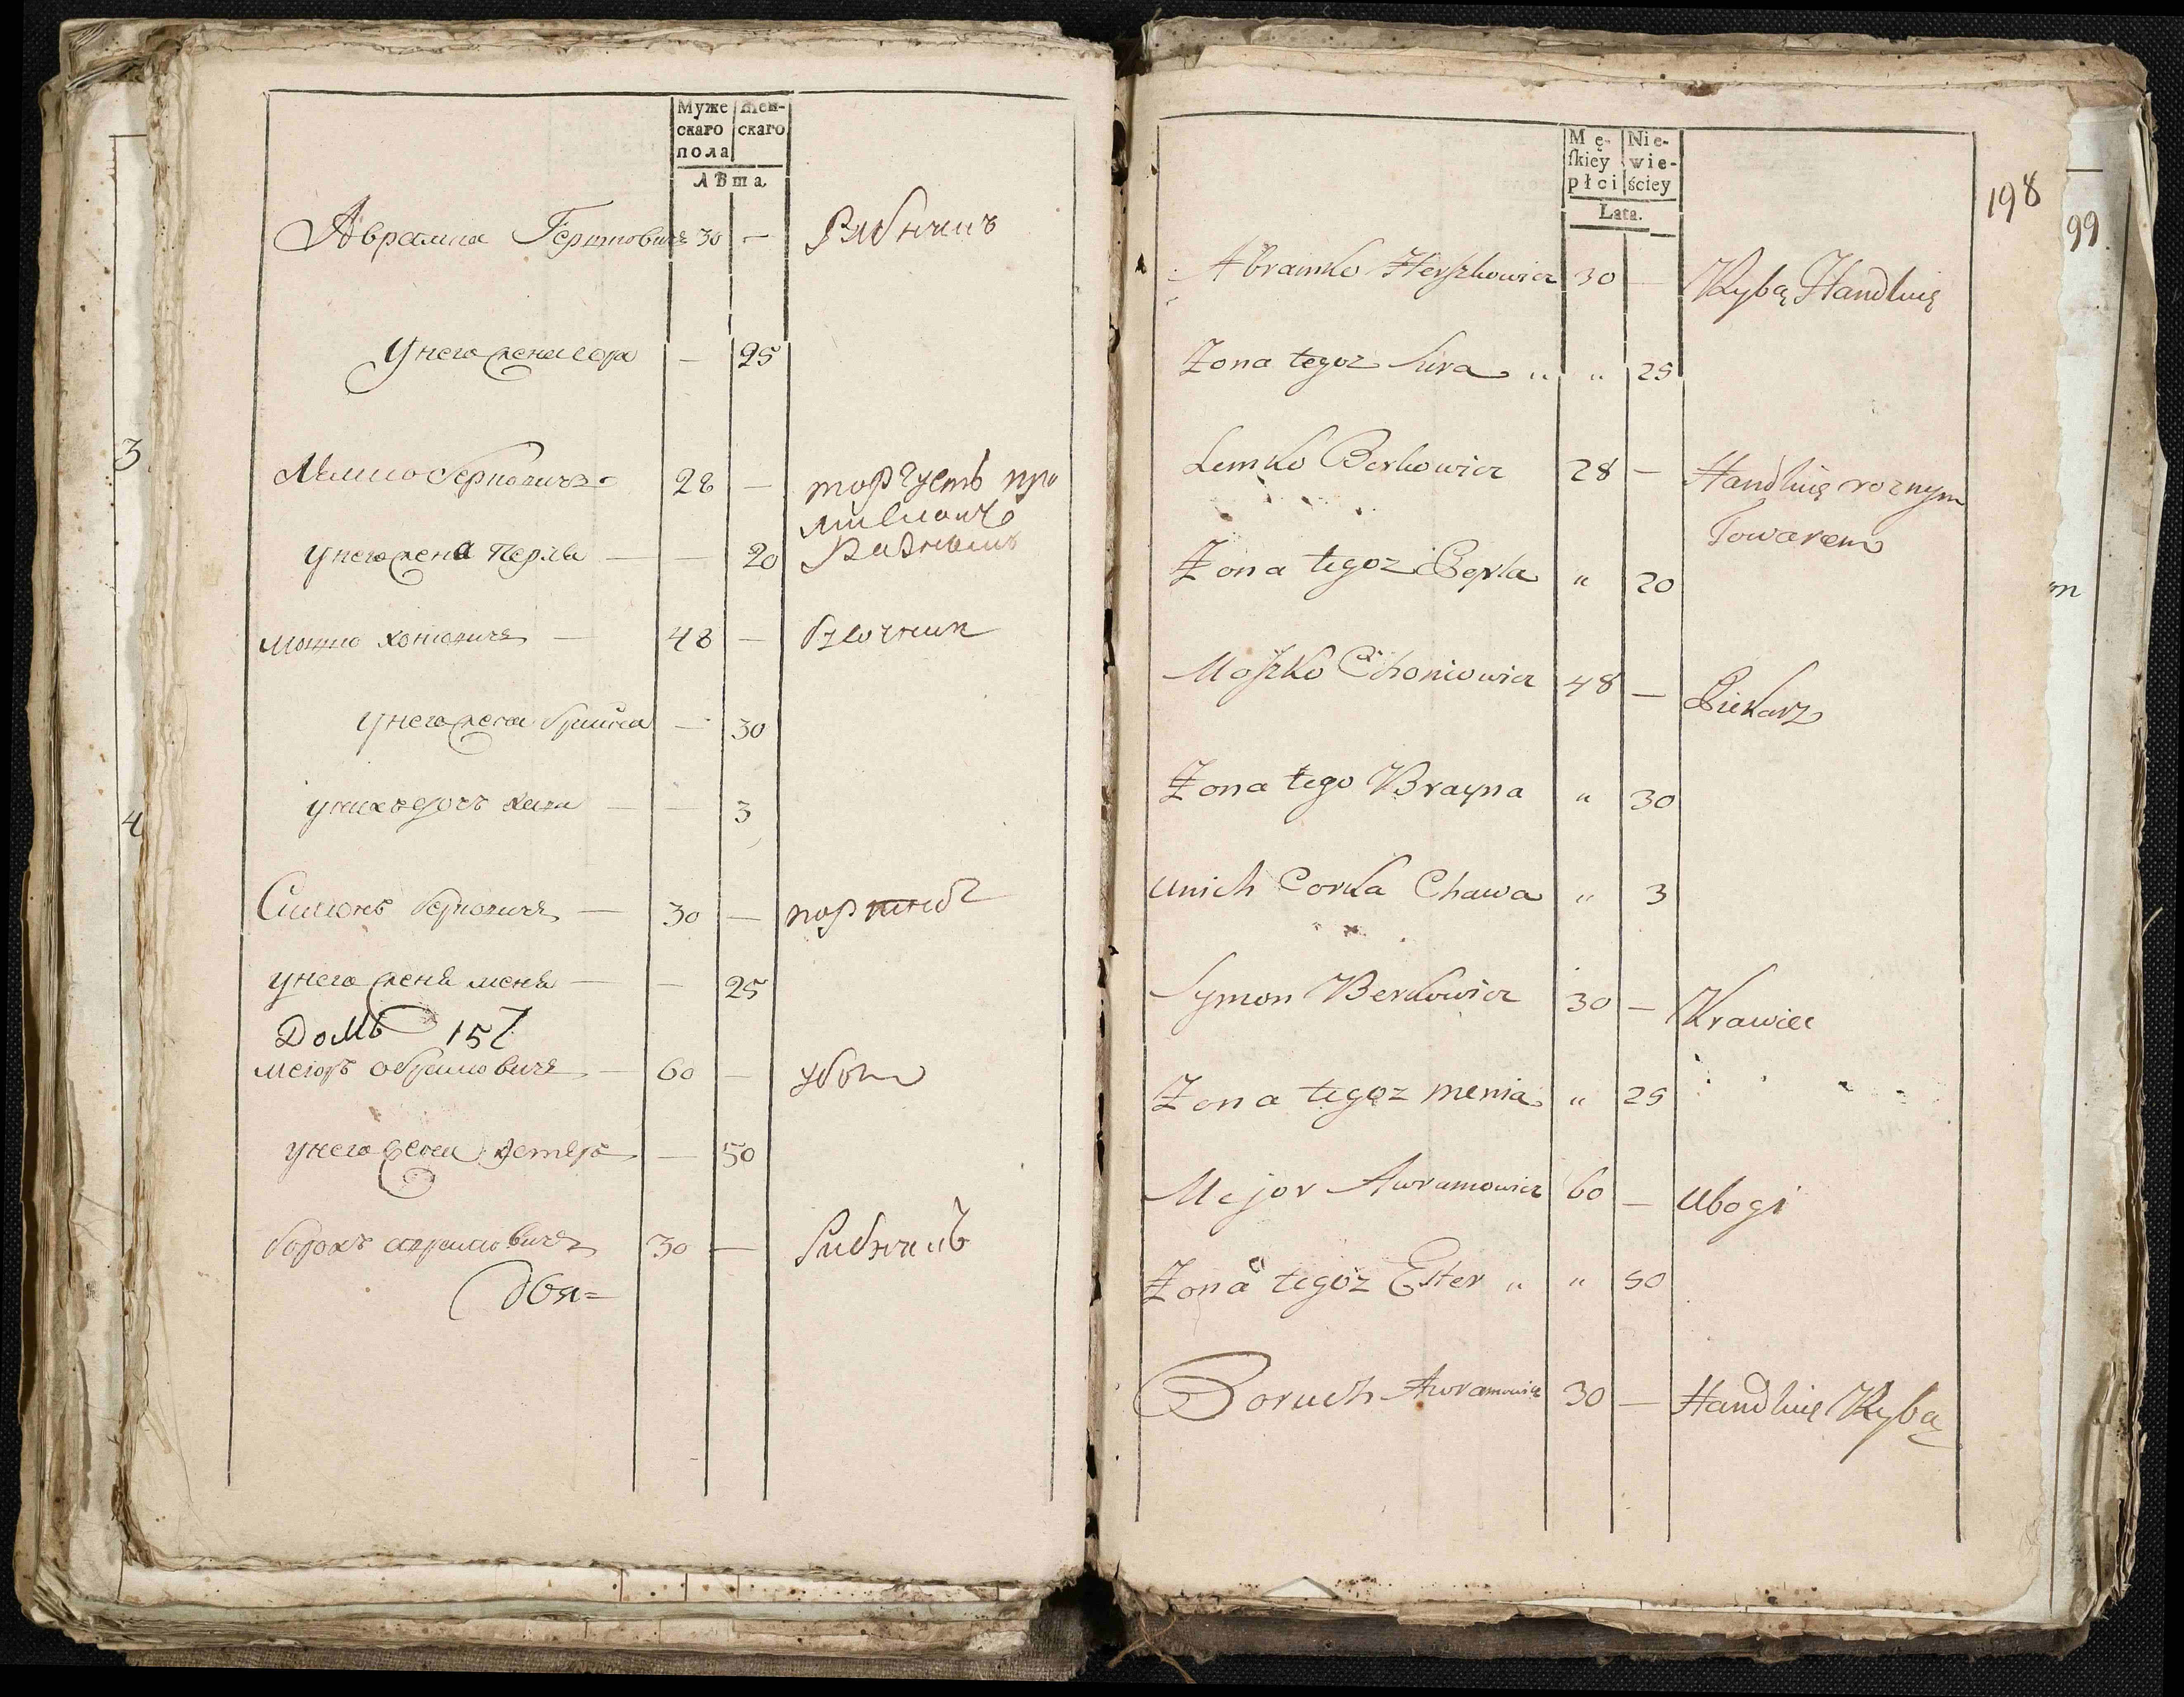 Муже
скаго
пола
жен-
скаго
лѣта
Аврамка Гершковичъ 30 — Рибникъ
У него жена сора — 25
Лемко берковичъ 28 — торгуетъ
разнымъ
У него жена перла — — 20
мошко хонювичъ — 48 —
У него жена брайна — 30
у нихъ дочь хава — — 3
Симонъ берковичъ — 30 — портной
у него жена меня — — 25
Домъ 157
меюръ абрамовичъ — 60 — убоги
у него жена — 50
борохъ аврамовичъ 30 — рибникъ
3
4
Mę-
ſkiey
płci
Nie-
wie-
ściey
Lata.
198
99
Abramko Herszkowicz 30 — Rybą Handluię
Zona tegoz Sura „ „ 25
Lemko Berkowicz 28 — Handluię roznym
Towarem
Zona tegoz Perla „ 20
Moszko Choniowicz 48 — Piekarz
Zona tego Brayna „ 30
Unich Corka Chawa „ 3
Symon Berkowicz 30 — Krawiec
Zona tegoz menia „ 25
Mejor Awramowicz 60 — Ubogi
Zona tegoz Ester „ „ 50
Boruch Awramowicz 30 — Handluię Rybą